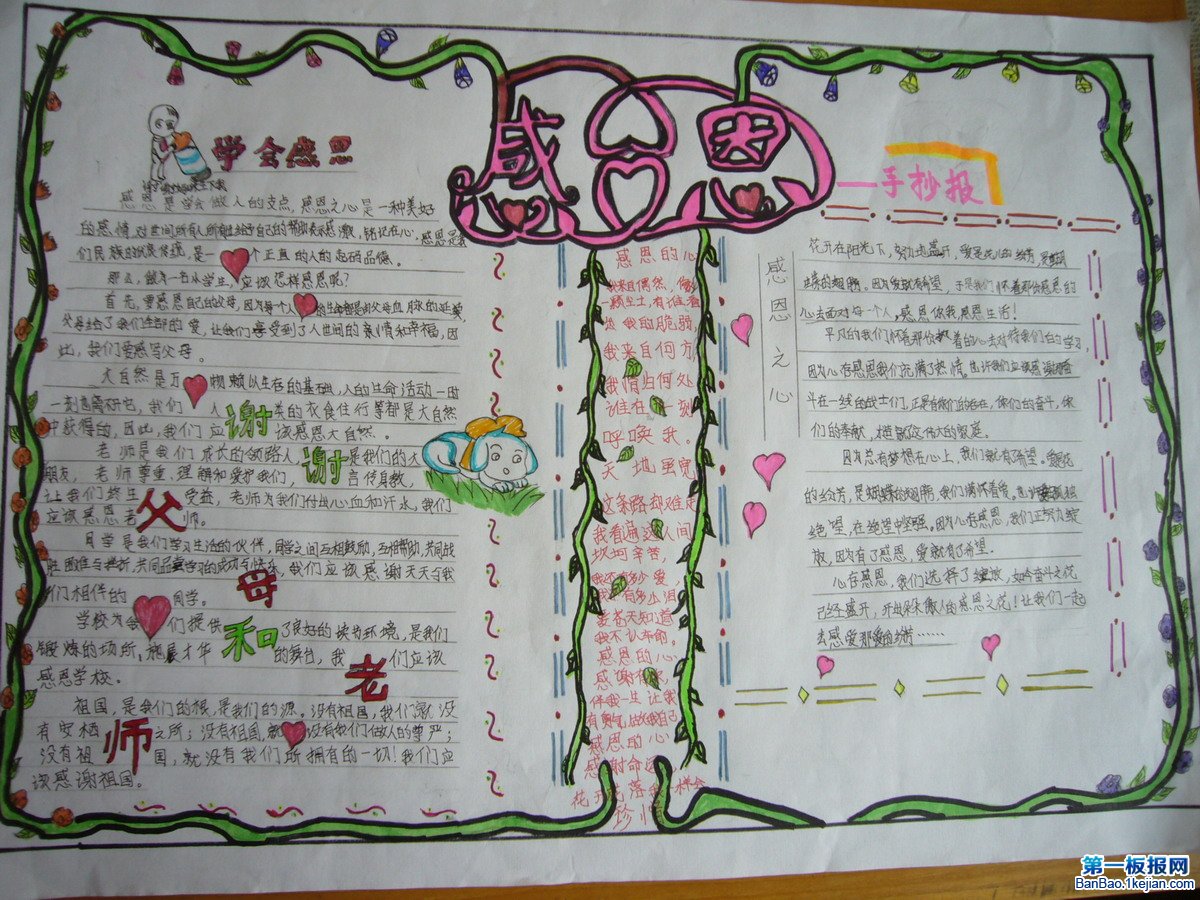 感恩
手抄报
学会感恩
感恩是学会做人的支点,感恩之心是一种美好
的感情,对世间所有人所有
给予自己的帮助表示感激,铭记在心,感恩是我
们民族的优良传统,是一个正直的人的起码品德。
那么,做为一名小学生,应该怎样感恩呢?
首先,要感恩自己的父母,因为每个人的生命都是父母血脉的延续,
父母给了我们生命的爱,让我们享受到了人世间的亲情和幸福,因
此,我们要感写父母。
大自然是万物赖以生存的基础,人的生命活动一时
一刻也离不开它,我们人类的衣食住行等都是大自然
中获得的,因此,我们应该感恩大自然。
老师是我们成长的领路人,是我们的大
朋友,老师尊重、理解和爱护我们,言传身教,
让我们终生受益,老师为我们付出心血和汗水,我们
应该感恩老师。
同学是我们学习生活的伙伴,同学之间互相鼓励,互相帮助,共同战
胜困难与挫折,共同品尝学习的成功与快乐,我们应该感谢天天与我
们相伴的同学。
学校为我们提供了良好的读书环境,是我们
锻炼的场所,施展才华的舞台,我们应该
感恩学校。
祖国,是我们的根,是我们的源。没有祖国,我们就没
有安栖之所;没有祖国,就没有我们做人的尊严;
没有祖国,就没有我们所拥有的一切!我们应
该感谢祖国。
谢
谢
父
母
和
老
师
感恩的心
我来自偶然,像
一颗尘土,有谁看
出我的脆弱,
我来自何方,
我情归何处
谁在下一刻
呼唤我。
天地虽宽
这条路却难走
我看遍这人间
坎坷辛苦,
我还有多少爱,
我还有多少泪
要苍天知道
我不认输。
感恩的心
感谢有你,
伴我一生 让我
有勇气做我自己
感恩的心
感谢命运
花开花落我一样会
珍惜
感恩之心
花开在阳光下,努力地盛开,
心去面对每一个人,感恩你我感恩生活!
平凡的我们怀着那份执着的心去对待我们自己的学习,
因为心存感恩我们充满了热情。也许我们应该感谢
斗在一线的战士们,正是有你们的存在,你们的奋斗,你
们的奉献,才
伟大的家庭。
因为总有梦想在心上,我们就有了希望。
绝望,在绝望中坚强。因为心存感恩,我们正努力绽
放,因为有了感恩,爱就有了希望。
心存感恩,我们选择了绽放,如今奋斗之花
已经盛开,开出朵朵傲人的感恩之花!让我们一起
去感爱那爱的
……
第一板报网
BanBao.1kejian.com